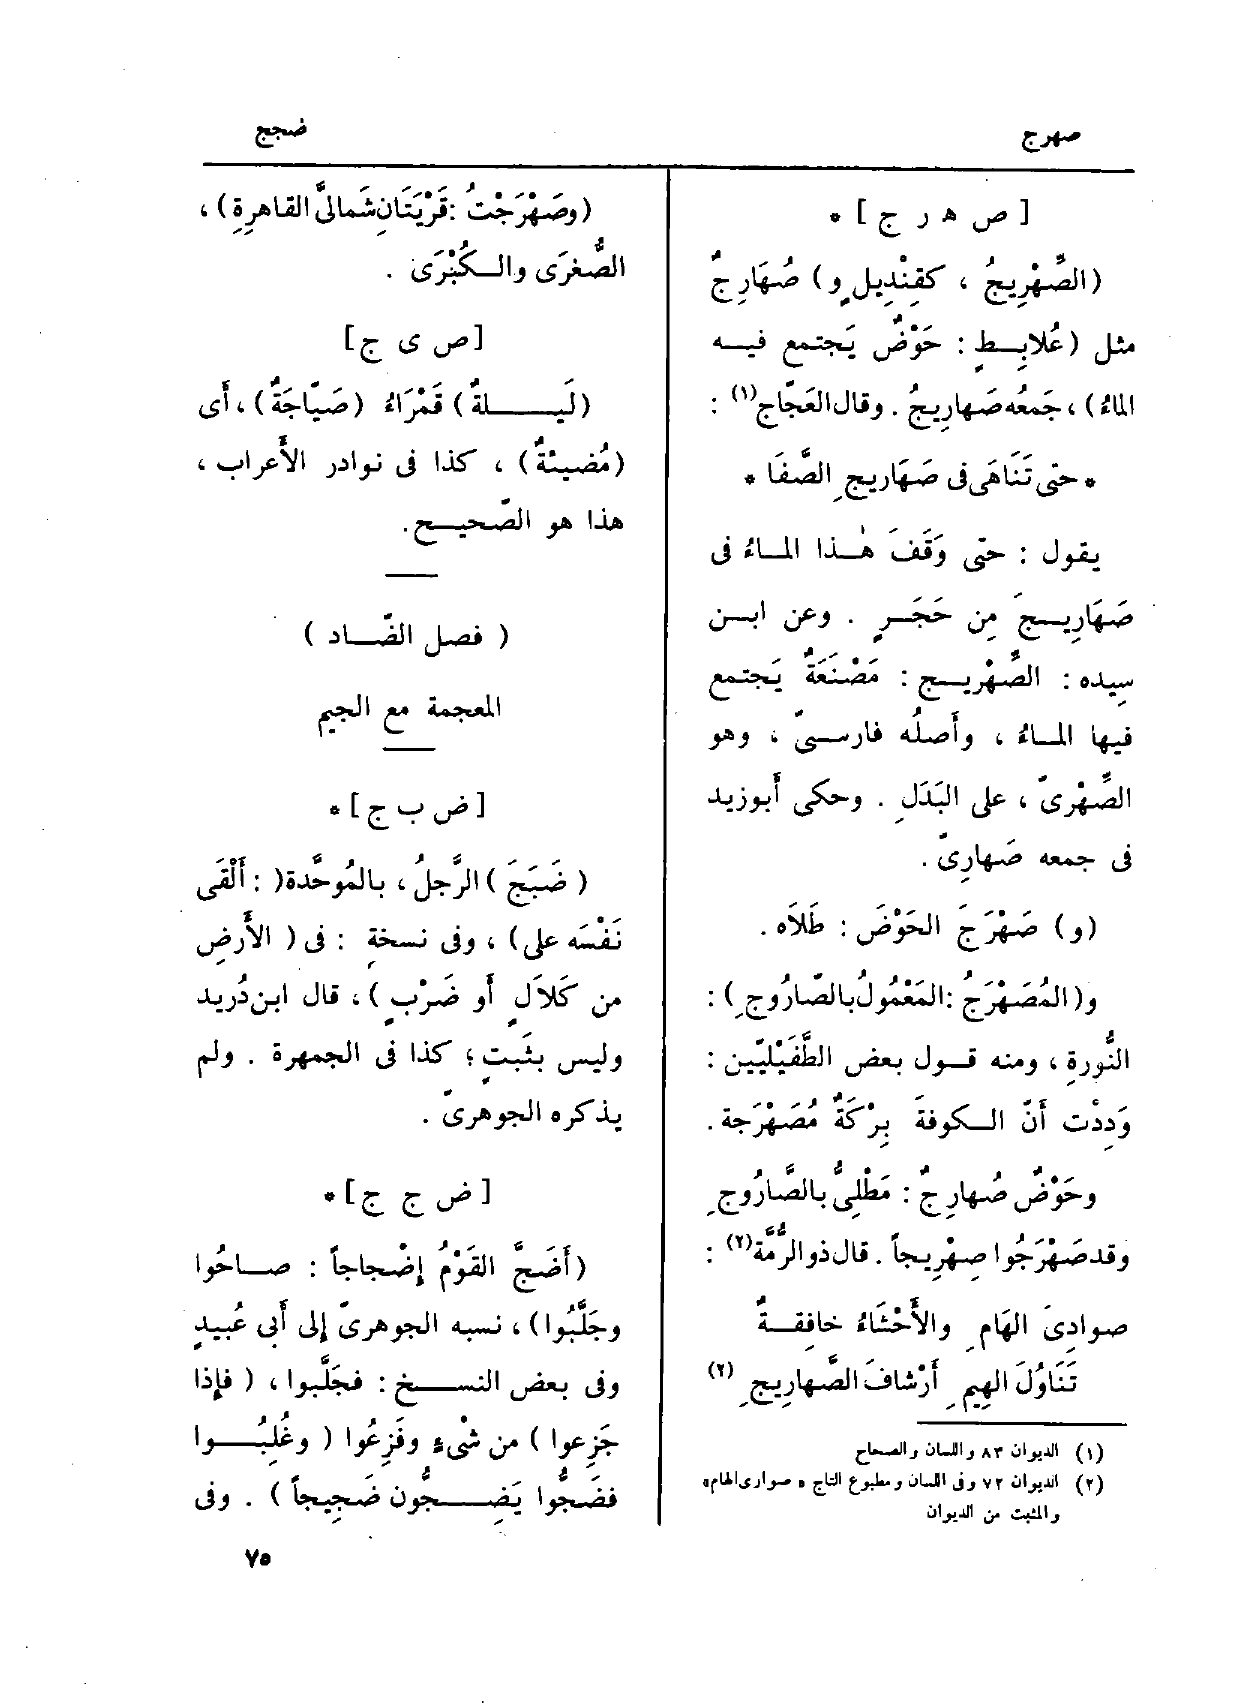 صهرج
ضجج
[ ص ه ر ج ] *
(الصِّهْرِيجُ ، كقِنْدِيلٍ و) صُهَارِجٌ
مثل (عُلابِــطٍ : حَوْضٌ يَجتمع فيــه
الماءُ) ، جَمعُه صَهارِيجُ . وقال العَجّاج(١) :
* حتى تَنَاهَى فى صَهَارِيجِ الصَّفَا *
يقول : حتى وَقَفَ هٰــذا المــاءُ فى
صَهَارِيــجَ مِن حَجَــرٍ . وعن ابــن
سِيده : الصِّهْرِيــج : مَصْنَعَةٌ يَجتمع
فيها المــاءُ ، وأَصلُه فارســىّ ، وهو
الصِّهْرِىّ ، على البَدَلِ . وحكى أَبو زيد
فى جمعه صَهارِىّ .
(و) صَهْرَجَ الحَوْضَ : طَلَاه .
و(المُصَهْرَجُ : المَعْمُول بالصّارُوجِ) :
النُّورةِ ، ومنه قــول بعض الطُّفَيْلِيّين :
وَدِدْت أَنّ الــكوفةَ بِرْكَةٌ مُصَهْرَجة .
وحَوْضٌ صُهارِجٌ : مَطْلِىٌّ بالصَّارُوجِ
وقد صَهْرَجُوا صِهْرِيجاً . قال ذو الرُّمَّة(٢) :
صوادِىَ الهَامِ والأَحْشَاءُ خافِقــةٌ
تَنَاوُلَ الهِيمِ أَرْشافَ الصَّهارِيجِ (٢)
(١) الديوان ٨٣ واللسان والصحاح
(٢) الديوان ٧٢ وفى اللسان ومطبوع التاج « صوارى الهام»
والمثبت من الديوان
(وصَهْرَجْتُ : قَرْيَتَانِ شَمالىَّ القاهِرِةِ) ،
الصُّغرَى والــكُبْرَى .
[ص ى ج]
(لَيــــلةٌ) قَمْرَاءُ (صَيّاجَةٌ) ، أَى
(مُضيئةٌ) ، كذا فى نوادر الأَعراب ،
هذا هو الصّحيــح .
( فصل الضّــاد )
المعجمة مع الجيم
[ض ب ج] *
( ضَبَجَ ) الرَّجلُ ، بالمُوحَّدة( : أَلْقَى
نَفْسَه على) ، وفى نسخةِ : فى ( الأَرضِ
من كَلَالٍ أَو ضَرْبٍ ) ، قال ابن دُريد
وليس بثَبتٍ ؛ كذا فى الجمهرة . ولم
يذكره الجوهرىّ .
[ ض ج ج ] *
(أَضَجَّ القَوْمُ إِضْجاجاً : صــاحُوا
وجَلَّبُوا) ، نسبه الجوهرىّ إِلى أَبى عُبيدٍ
وفى بعض النســـخ : فجَلَّبوا ، ( فإِذا
جَزِعوا ) من شىْءٍ وفَزِعُوا ( وغُلِبُـــوا
فضَجُّوا يَضِــــجُّون ضَجِيجاً ) . وفى
٧٥